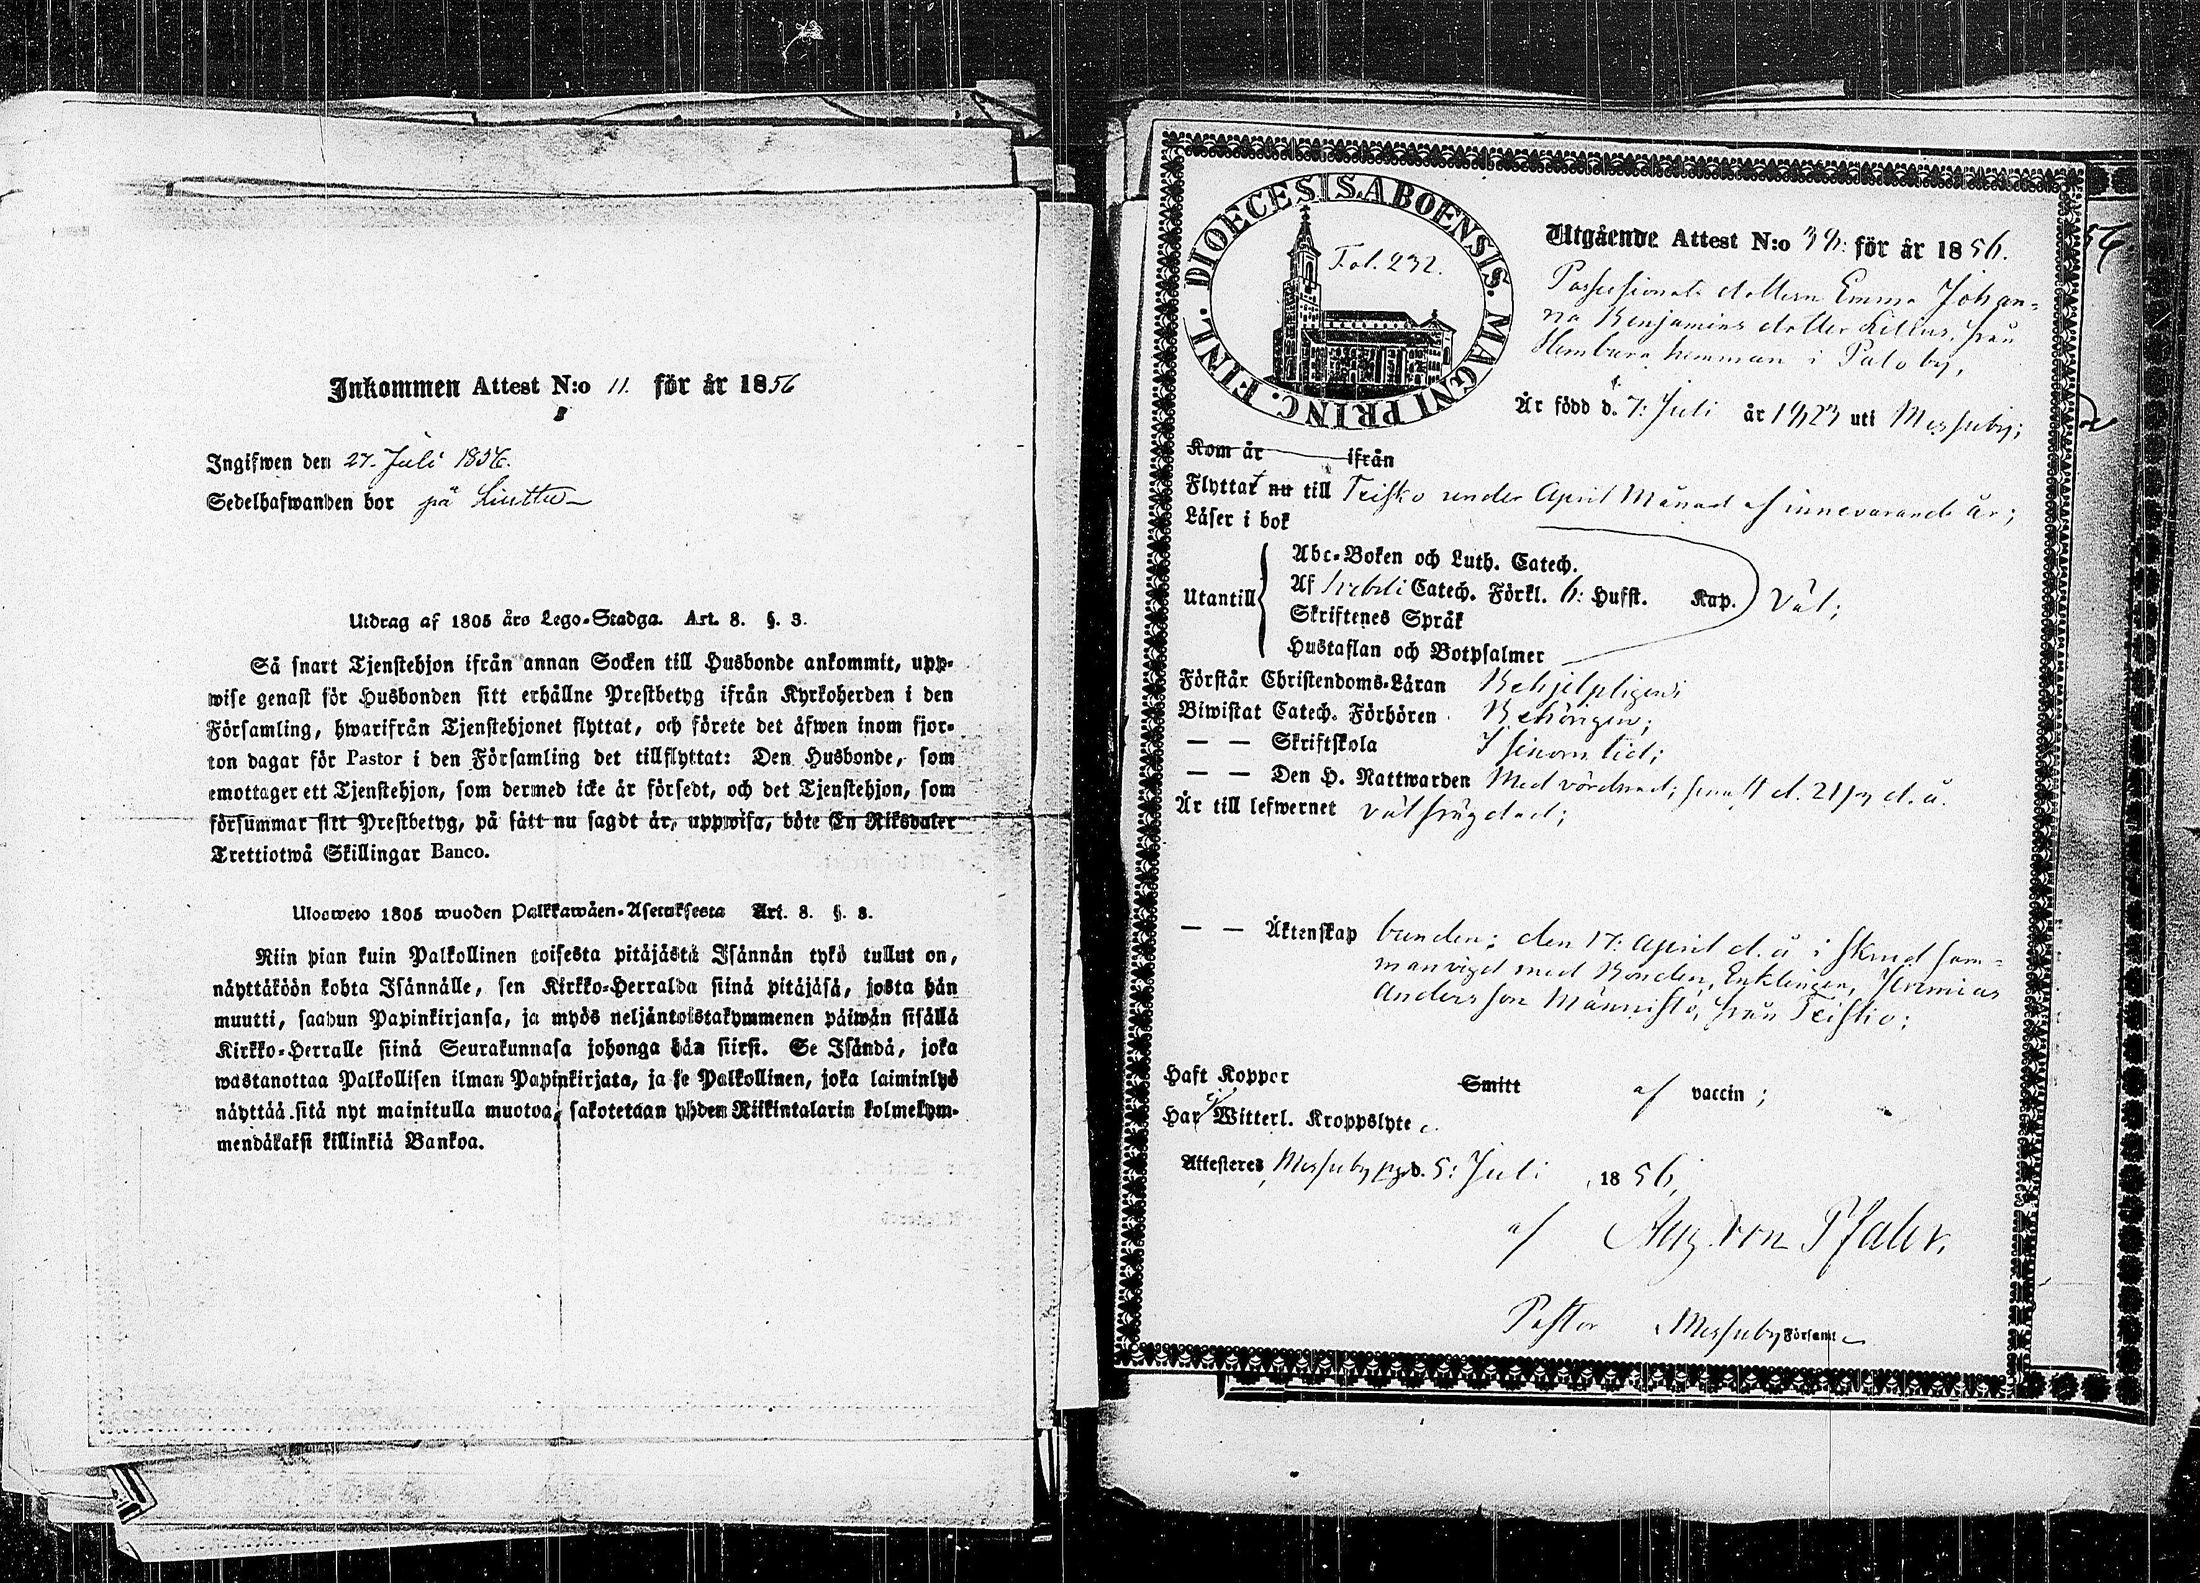 Inkommen Attest N:o 11. för år 1856
Ingifwen den 27. Juli 1856.
Sedelhafwanden bor på Liuttu
Utdrag af 1805 års Lego-Stadga. Art. 8. §. 3.
Så snart Tjenstehjon ifrån annan Socken till Husbonde ankommit, upp-
wise genast för Husbonden sitt erhållne Prestbetyg ifrån Kyrkoherden i den
Församling, hwarifrån Tjenstehjonet flyttat, och förete det äfwen inom fjor-
ton dagar för Pastor i den Församling det tillflyttat: Den Husbonde, som
emottager ett Tjenstehjon, som dermed icke är försedt, och det Tjenstehjon, som
försummar sitt Prestbetyg, på sätt nu sagdt är, uppwisa, böte En Riksdaler
Trettiotwå Skillingar Banco.
Ulosweto 1805 wuoden Palkkawäen-Asetuksesta Art. 8. §. 3.
Niin pian kuin Palkollinen toisesta pitäjästä Isännän tykö tullut on,
näyttäköön kohta Isännälle, sen Kirkko-Herralda siinä pitäjäsä, josta hän
muutti, saadun Papinkirjansa, ja myös neljäntoistakymmenen päiwän sisällä
Kirkko-Herralle siinä Seurakunnasa johonga hän siirsi. Se Isändä, joka
wastanottaa Palkollisen ilman Papinkirjata, ja se Palkollinen, joka laiminlyö
näyttää sitä nyt mainitulla muotoa, sakotetaan yhden Riikintalarin kolmekym-
mendäkaksi killinkiä Bankoa.
DIOECESIS ABOENSIS. MAGNI PRINC. FINL.
Fol. 232.
Utgående Attest N:o 38: för år 1856.
Possessionats dottern Emma Johan-
na Benjamins dotter från
hemman i Palo by,
Är född d. 7: Juli år 1823 uti Messuby;
Kom år ifrån
Flyttat nu till Teisko under April Månad af innevarande år;
Läser i bok
Utantill
Abc-Boken och Luth. Catech.
Af Svebeli Catech. Förkl. 6: Hufst. Kap.
Skriftenes Språk
Hustaflan och Botpsalmer
Väl;
Förstår Christendoms-Läran Behjelpligen;
Biwistat Catech. Förhören Behörigen;
— — Skriftskola I sinom tid;
— — Den H. Nattwarden Med vördnad; senast d. 21/3 d. å.
Är till lefwernet välfrägdad;
— — Äktenskap bunden; den 17: April d. å i Åkend sam-
manvigd med Bonden, Enklingen, Jeremias
Andersson Männistö, från Teisko;
Haft Koppor Smitt af vaccin;
Har ej Witterl. Kroppslyte
Attesteres, Messuby pgd. 5: Juli 1856,
af Aug. von Pfaler.
Pastor i Messuby Församl